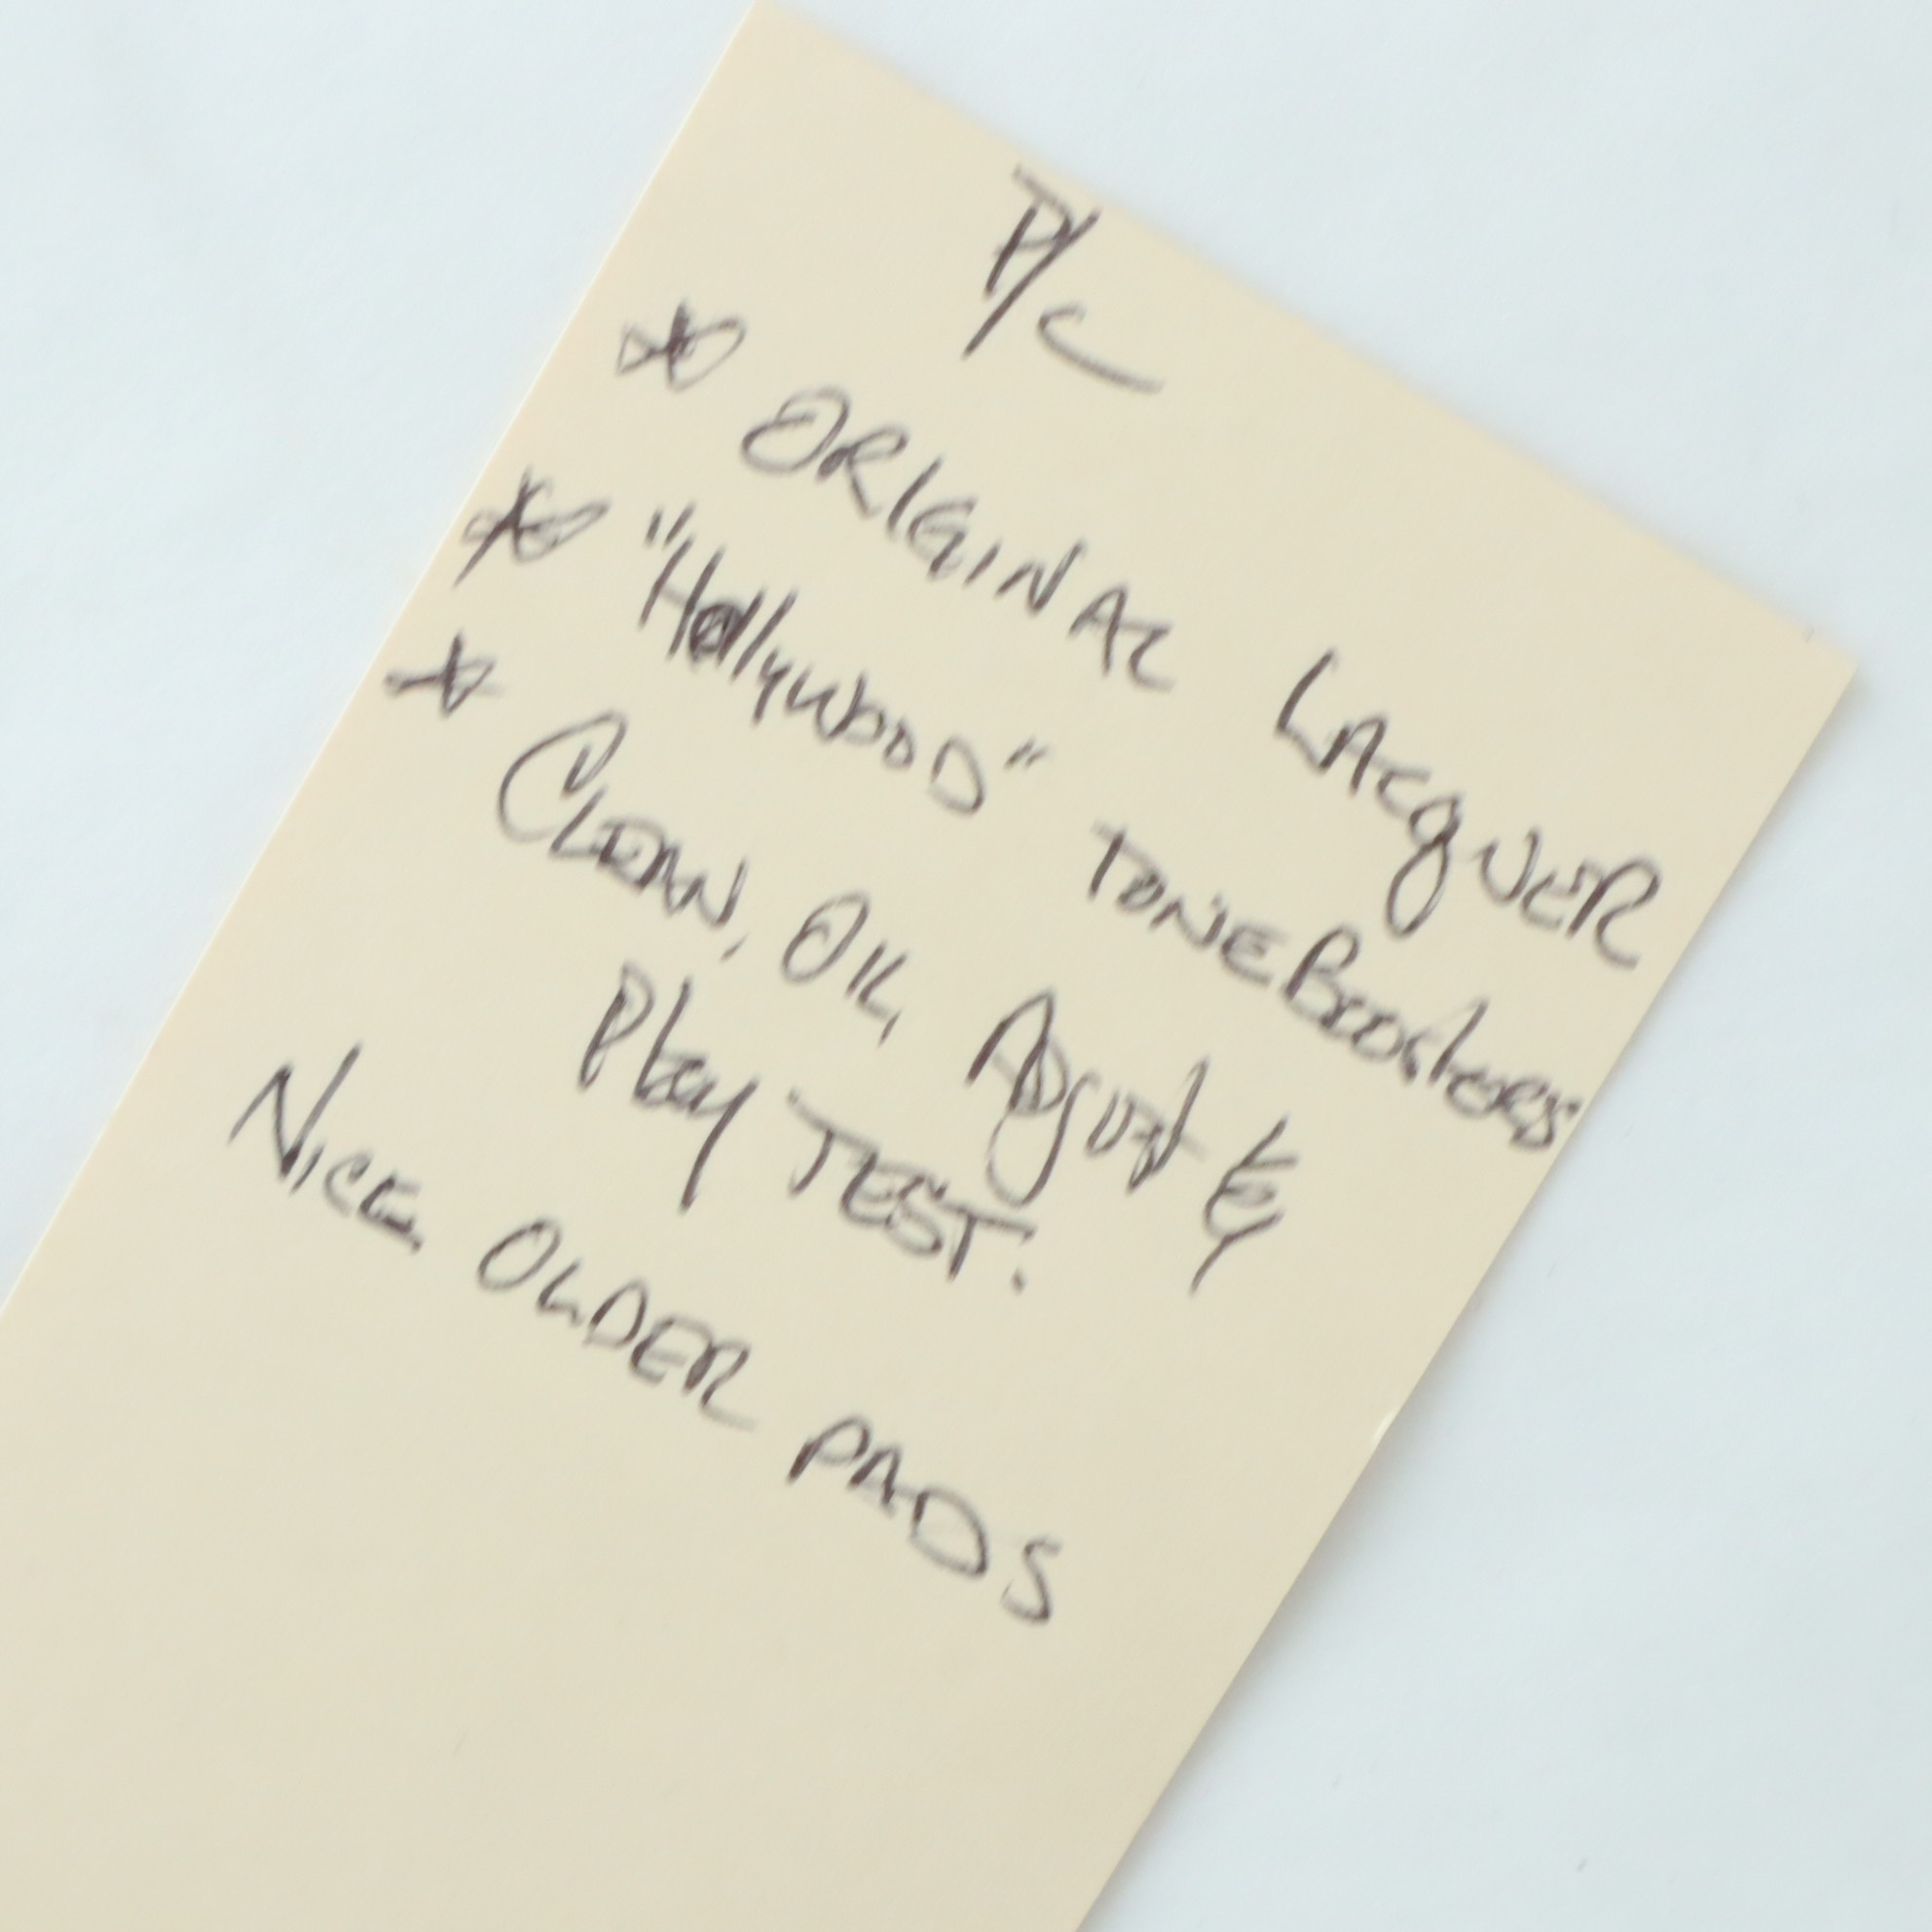 P/C
* ORIGINAL LACQUER
* "HollywooD" TONE Boosters
* CLEAN, OIL, ADJUST &
Play TEST.
NICE OLDER PADS